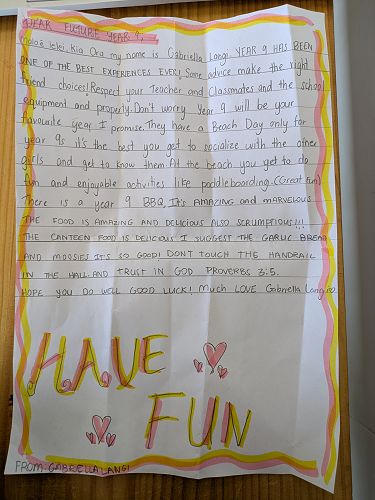 DEAR FUTURE YEAR 9,
malo e lelei, Kia Ora my name is Gabriella Langi YEAR 9 HAS BEEN
ONE OF THE BEST EXPERIENCES EVER! Some advice make the right
friend choices! Respect your Teacher and Classmates and the school
equipment and property. Don't worry Year 9 will be your
favourite year I promise. They have a Beach Day only for
year 9s it's the best you get to socialize with the other
girls and get to know them. At the beach you get to do
fun and enjoyable activities like paddleboarding. (Great fun)
There is a year 9 BBQ, It's AMAZING and MARVELOUS
THE FOOD IS AMAZING AND DELICIOUS ALSO SCRUMPTIOUS!!!
THE CANTEEN FOOD IS DELICIOUS I SUGGEST THE GARLIC BREAD
AND MOOSIES IT'S SO GOOD! DON'T TOUCH THE HANDRAIL
IN THE HALL. AND TRUST IN GOD PROVERBS 3:5.
HOPE YOU DO WELL GOOD LUCK! Much LOVE Gabriella Langi
HAVE
FUN
FROM: GABRIELLA LANGI